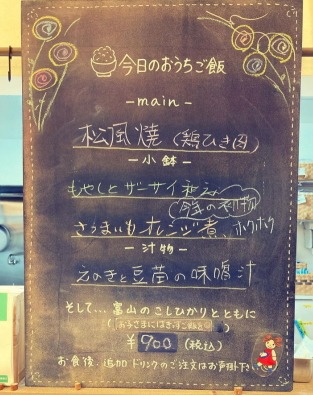 今日のおうちご飯
-main-
松風焼(鶏ひき肉)
-小鉢-
もやしとザーサイ和え
今年の初物
さつまいもオレンジ煮、ホクホク
-汁物-
えのきと豆苗の味噌汁
そして...富山のこしひかりとともに
¥900(税込)
お食後、追加ドリンクのご注文はお声掛け下さい